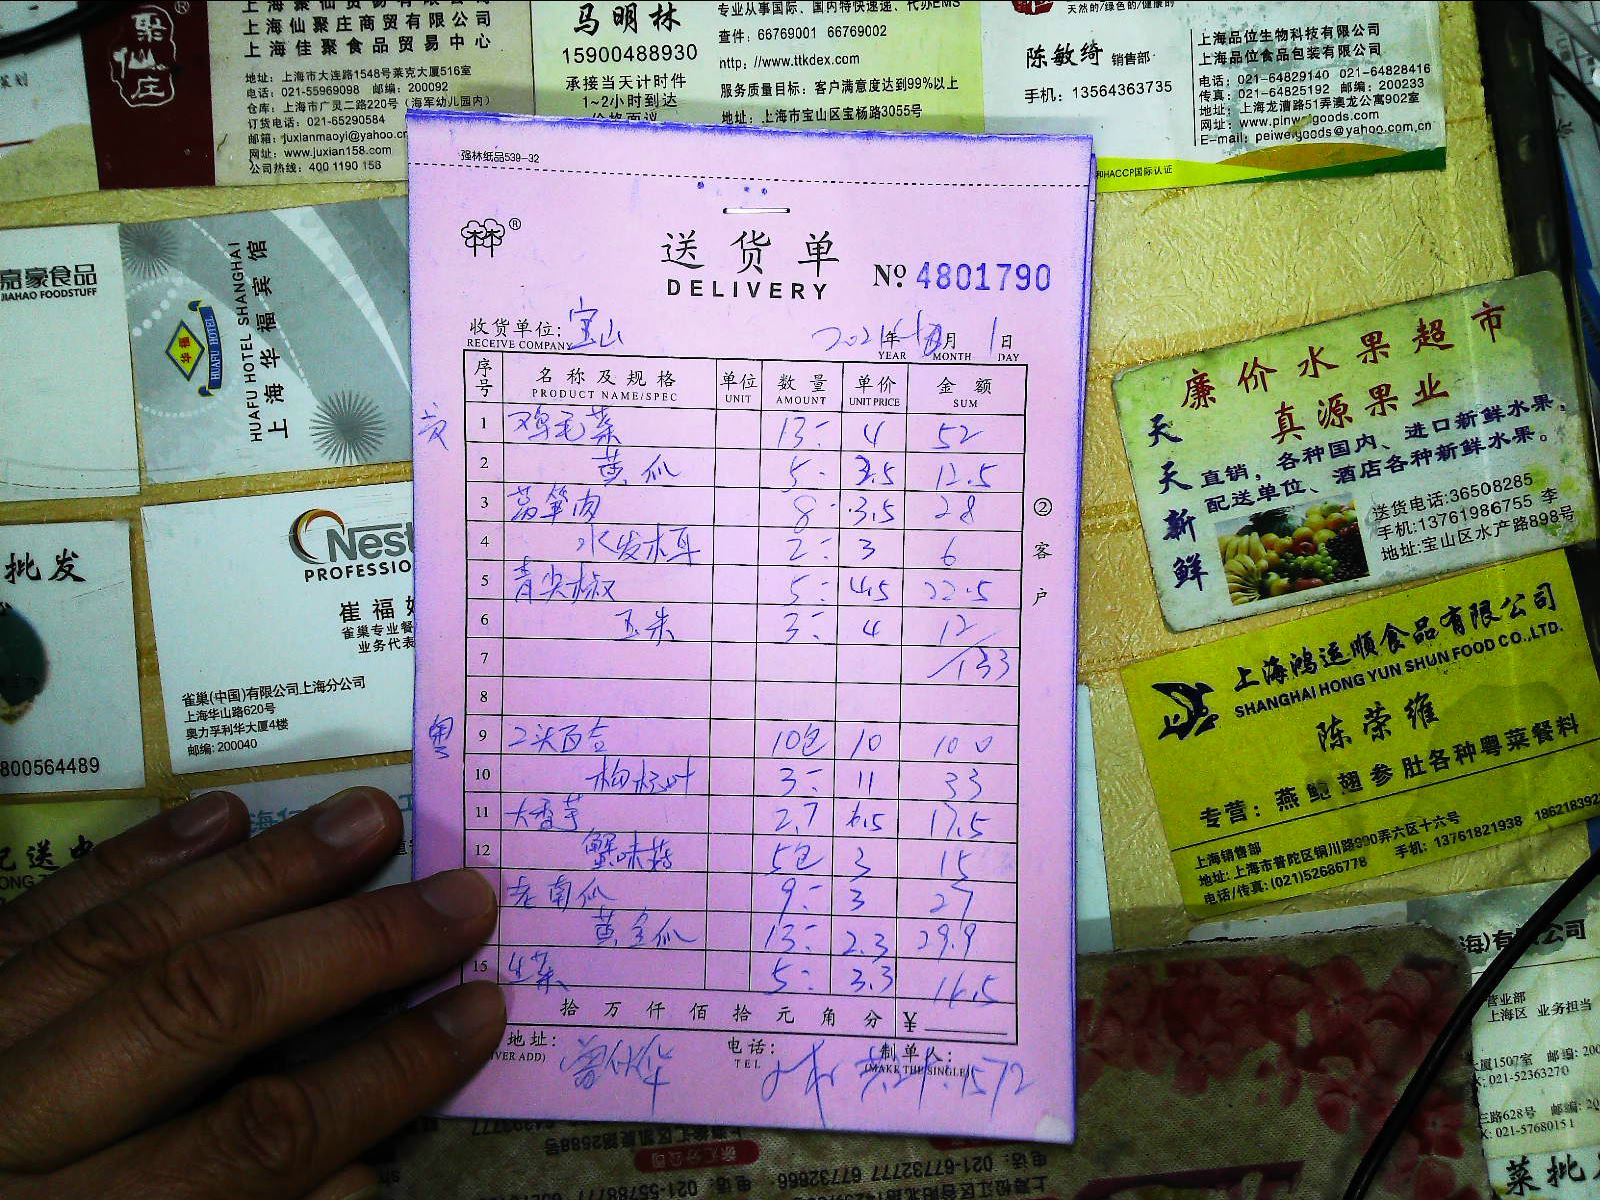 上海聚仙贸易有限公司
上海仙聚庄商贸有限公司
上海佳聚食品贸易中心
聚仙庄
地址：上海市大连路1548号莱克大厦516室
电话：021-55969098 邮编：200092
仓库：上海市广灵二路220号（海军幼儿园内）
订货电话：021-65290584
邮箱：juxianmaoyi@yahoo.cn
网址：www.juxian158.com
公司热线：400 1190 158
马明林
15900488930
承接当天计时件
1~2小时到达
价格面议
专业从事国际、国内特快速递、代办EMS
查件：66769001 66769002
http://www.ttkdex.com
服务质量目标：客户满意度达到99%以上
地址：上海市宝山区宝杨路3055号
天然的/绿色的/健康的
陈敏绮 销售部
手机：13564363735
上海品位生物科技有限公司
上海品位食品包装有限公司
电话：021-64829140 021-64828416
传真：021-64825192 邮编：200233
地址：上海龙漕路51弄澳龙公寓902室
网址：www.pinweigoods.com
E-mail：peiweigoods@yahoo.com.cn
和HACCP国际认证
嘉豪食品
JIAHAO FOODSTUFF
华福
HUAFU HOTEL
HUAFU HOTEL SHANGHAI
上海华福宾馆
批发
800564489
Nest
PROFESSIO
崔福
雀巢专业餐
业务代表
雀巢(中国)有限公司上海分公司
上海华山路620号
奥力孚利华大厦4楼
邮编：200040
强林纸品539-32
林®
送货单
DELIVERY
No. 4801790
收货单位：宝山
RECEIVE COMPANY
2021年 月 1日
YEAR MONTH DAY
序号 名称及规格 单位 数量 单价 金额
PRODUCT NAME/SPEC UNIT AMOUNT UNIT PRICE SUM
1 鸡毛菜 13- 4 52
2 黄瓜 5- 2.5 12.5
3 莴笋肉 8- 3.5 28
4 水发木耳 2- 3 6
5 青尖椒 5- 4.5 22.5
6 玉米 3- 4 12
7 133
8
粤
9 二头百合 10包 10 100
10 柏杨叶 3- 11 33
11 大香芋 2.7 6.5 17.5
12 蟹味菇 5包 3 15
老南瓜 9- 3 27
黄金瓜 13- 2.3 29.9
15 生菜 5- 3.3 16.5
拾万仟佰拾元角分 ¥
地址：
(DELIVER ADD)
电话：
TEL
制单人：
(MAKE THE SINGLE)
②客户
廉价水果超市
真源果业
天天新鲜
直销，各种国内、进口新鲜水果，
配送单位、酒店各种新鲜水果。
送货电话:36508285
手机:13761986755 李
地址:宝山区水产路898号
上海鸿运顺食品有限公司
SHANGHAI HONG YUN SHUN FOOD CO.,LTD.
陈荣维
专营：燕鲍翅参肚各种粤菜餐料
上海销售部
地址：上海市普陀区铜川路990弄六区十六号
电话/传真：(021)52686778 手机：13761821938 1862183923
海)有限公司
营业部
上海区 业务担当
大厦1507室 邮编：200
021-52363270
三路628号 邮编：20
021-57680151
菜批
电话：021-67732777 67732666